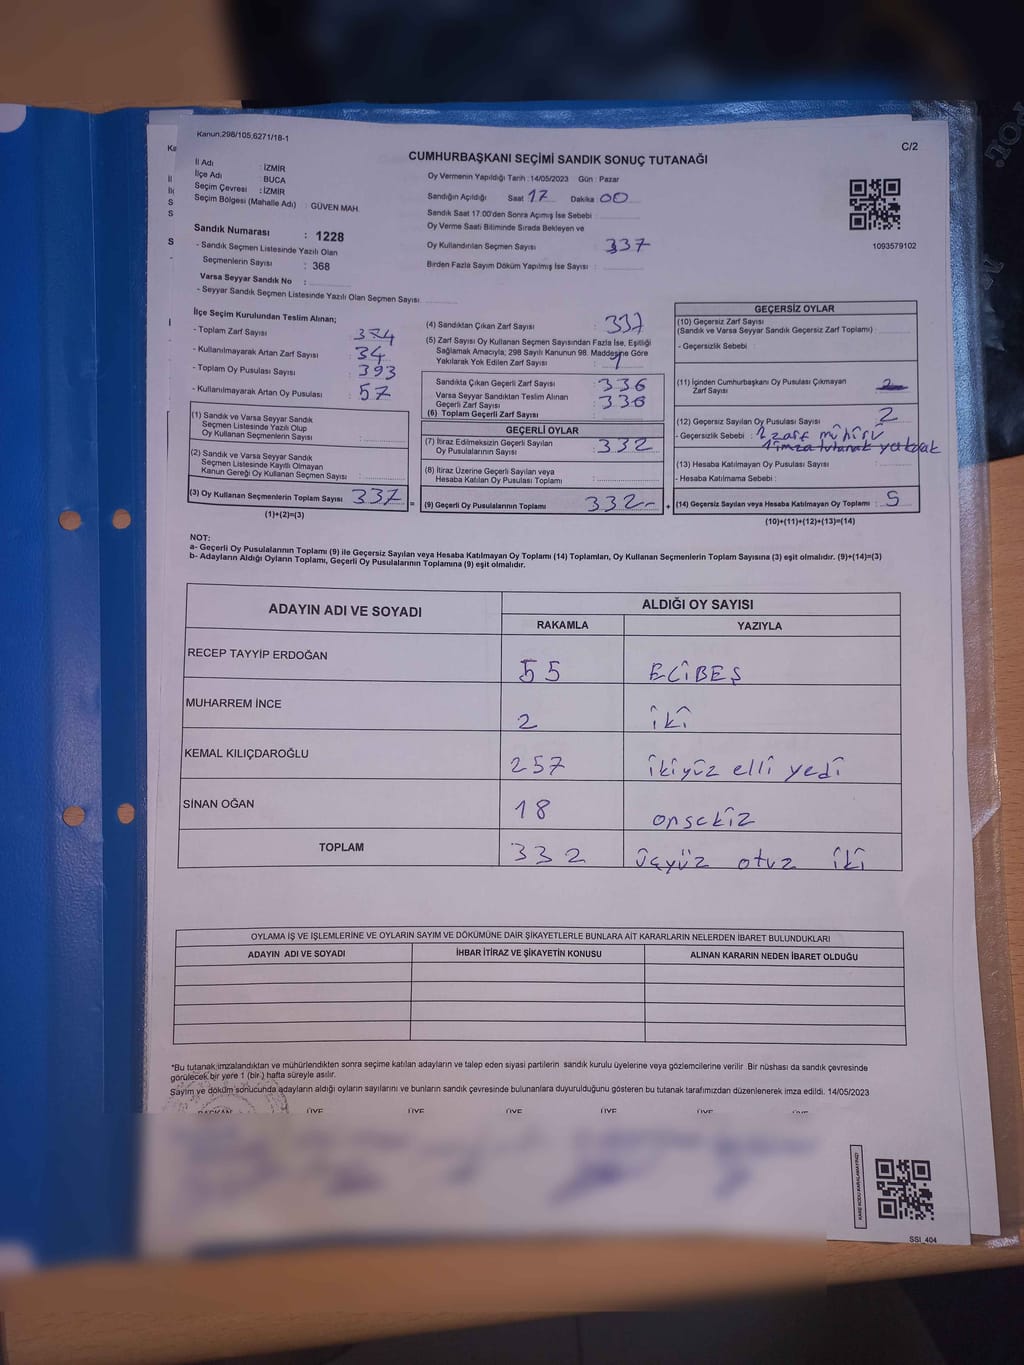 Kanun.298/105,6271/18-1
C/2
CUMHURBAŞKANI SEÇİMİ SANDIK SONUÇ TUTANAĞI
İl Adı : İZMİR
İlçe Adı : BUCA
Seçim Çevresi : İZMİR
Seçim Bölgesi (Mahalle Adı) : GÜVEN MAH.
Sandık Numarası : 1228
- Sandık Seçmen Listesinde Yazılı Olan
Seçmenlerin Sayısı : 368
Varsa Seyyar Sandık No :
- Seyyar Sandık Seçmen Listesinde Yazılı Olan Seçmen Sayısı
Oy Vermenin Yapıldığı Tarih : 14/05/2023 Gün : Pazar
Sandığın Açıldığı Saat 17 Dakika 00
Sandık Saat 17:00'den Sonra Açımış İse Sebebi :
Oy Verme Saati Bitiminde Sırada Bekleyen ve
Oy Kullandırılan Seçmen Sayısı : 337
Birden Fazla Sayım Döküm Yapılmış İse Sayısı :
1093579102
İlçe Seçim Kurulundan Teslim Alınan;
- Toplam Zarf Sayısı : 374
- Kullanılmayarak Artan Zarf Sayısı : 34
- Toplam Oy Pusulası Sayısı : 393
- Kullanılmayarak Artan Oy Pusulası : 57
(1) Sandık ve Varsa Seyyar Sandık
Seçmen Listesinde Yazılı Olup
Oy Kullanan Seçmenlerin Sayısı :
(2) Sandık ve Varsa Seyyar Sandık
Seçmen Listesinde Kayıtlı Olmayan
Kanun Gereği Oy Kullanan Seçmen Sayısı :
(3) Oy Kullanan Seçmenlerin Toplam Sayısı : 337
(1)+(2)=(3)
(4) Sandıktan Çıkan Zarf Sayısı : 337
(5) Zarf Sayısı Oy Kullanan Seçmen Sayısından Fazla İse, Eşitliği
Sağlamak Amacıyla; 298 Sayılı Kanunun 98. Maddesine Göre
Yakılarak Yok Edilen Zarf Sayısı : 1
Sandıkta Çıkan Geçerli Zarf Sayısı : 336
Varsa Seyyar Sandıktan Teslim Alınan
Geçerli Zarf Sayısı : 336
(6) Toplam Geçerli Zarf Sayısı
GEÇERLİ OYLAR
(7) İtiraz Edilmeksizin Geçerli Sayılan
Oy Pusulalarının Sayısı : 332
(8) İtiraz Üzerine Geçerli Sayılan veya
Hesaba Katılan Oy Pusulası Toplamı :
(9) Geçerli Oy Pusulalarının Toplamı : 332-
GEÇERSİZ OYLAR
(10) Geçersiz Zarf Sayısı
(Sandık ve Varsa Seyyar Sandık Geçersiz Zarf Toplamı) :
- Geçersizlik Sebebi :
(11) İçinden Cumhurbaşkanı Oy Pusulası Çıkmayan
Zarf Sayısı :
(12) Geçersiz Sayılan Oy Pusulası Sayısı : 2
- Geçersizlik Sebebi : 2 zarf mühürü
1 imza tutanak
(13) Hesaba Katılmayan Oy Pusulası Sayısı :
- Hesaba Katılmama Sebebi :
(14) Geçersiz Sayılan veya Hesaba Katılmayan Oy Toplamı : 5
(10)+(11)+(12)+(13)=(14)
NOT:
a- Geçerli Oy Pusulalarının Toplamı (9) ile Geçersiz Sayılan veya Hesaba Katılmayan Oy Toplamı (14) Toplamları, Oy Kullanan Seçmenlerin Toplam Sayısına (3) eşit olmalıdır. (9)+(14)=(3)
b- Adayların Aldığı Oyların Toplamı, Geçerli Oy Pusulalarının Toplamına (9) eşit olmalıdır.
ADAYIN ADI VE SOYADI ALDIĞI OY SAYISI
RAKAMLA YAZIYLA
RECEP TAYYİP ERDOĞAN 55 ELİBEŞ
MUHARREM İNCE 2 iki
KEMAL KILIÇDAROĞLU 257 ikiyüz elli yedi
SİNAN OĞAN 18 onsekiz
TOPLAM 332 üçyüz otuz iki
OYLAMA İŞ VE İŞLEMLERİNE VE OYLARIN SAYIM VE DÖKÜMÜNE DAİR ŞİKAYETLERLE BUNLARA AİT KARARLARIN NELERDEN İBARET BULUNDUKLARI
ADAYIN ADI VE SOYADI İHBAR İTİRAZ VE ŞİKAYETİN KONUSU ALINAN KARARIN NEDEN İBARET OLDUĞU
*Bu tutanak imzalandıktan ve mühürlendikten sonra seçime katılan adayların ve talep eden siyasi partilerin sandık kurulu üyelerine veya gözlemcilerine verilir. Bir nüshası da sandık çevresinde
görülecek bir yere 1 (bir ) hafta süreyle asılır.
Sayım ve döküm sonucunda adayların aldığı oyların sayılarını ve bunların sandık çevresinde bulunanlara duyurulduğunu gösteren bu tutanak tarafımızdan düzenlenerek imza edildi. 14/05/2023
BAŞKAN ÜYE ÜYE ÜYE ÜYE ÜYE ÜYE
SSI_404